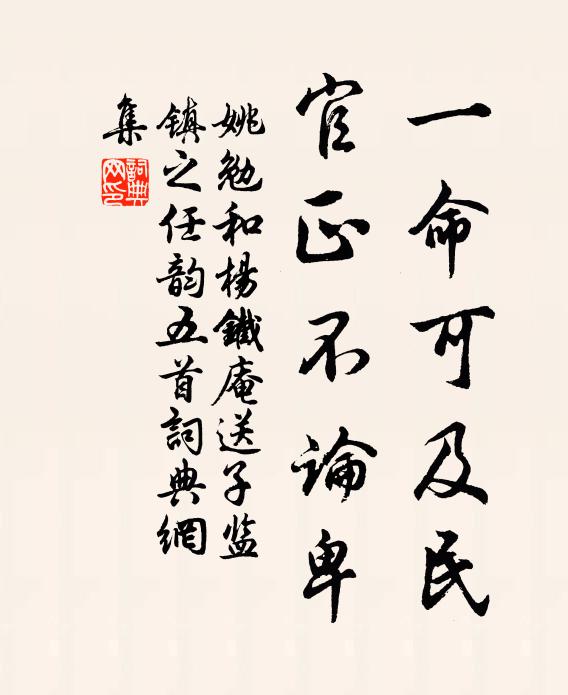 一命可及民
官正不論卑
姚勉和楊鐵庵送子监
鎮之任韵五首詞典網
集
詞典
网印